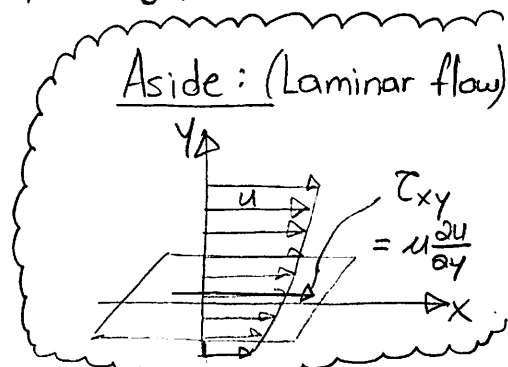 Aside: (Laminar flow)
Y
u
τxy
= μ ∂u/∂y
X